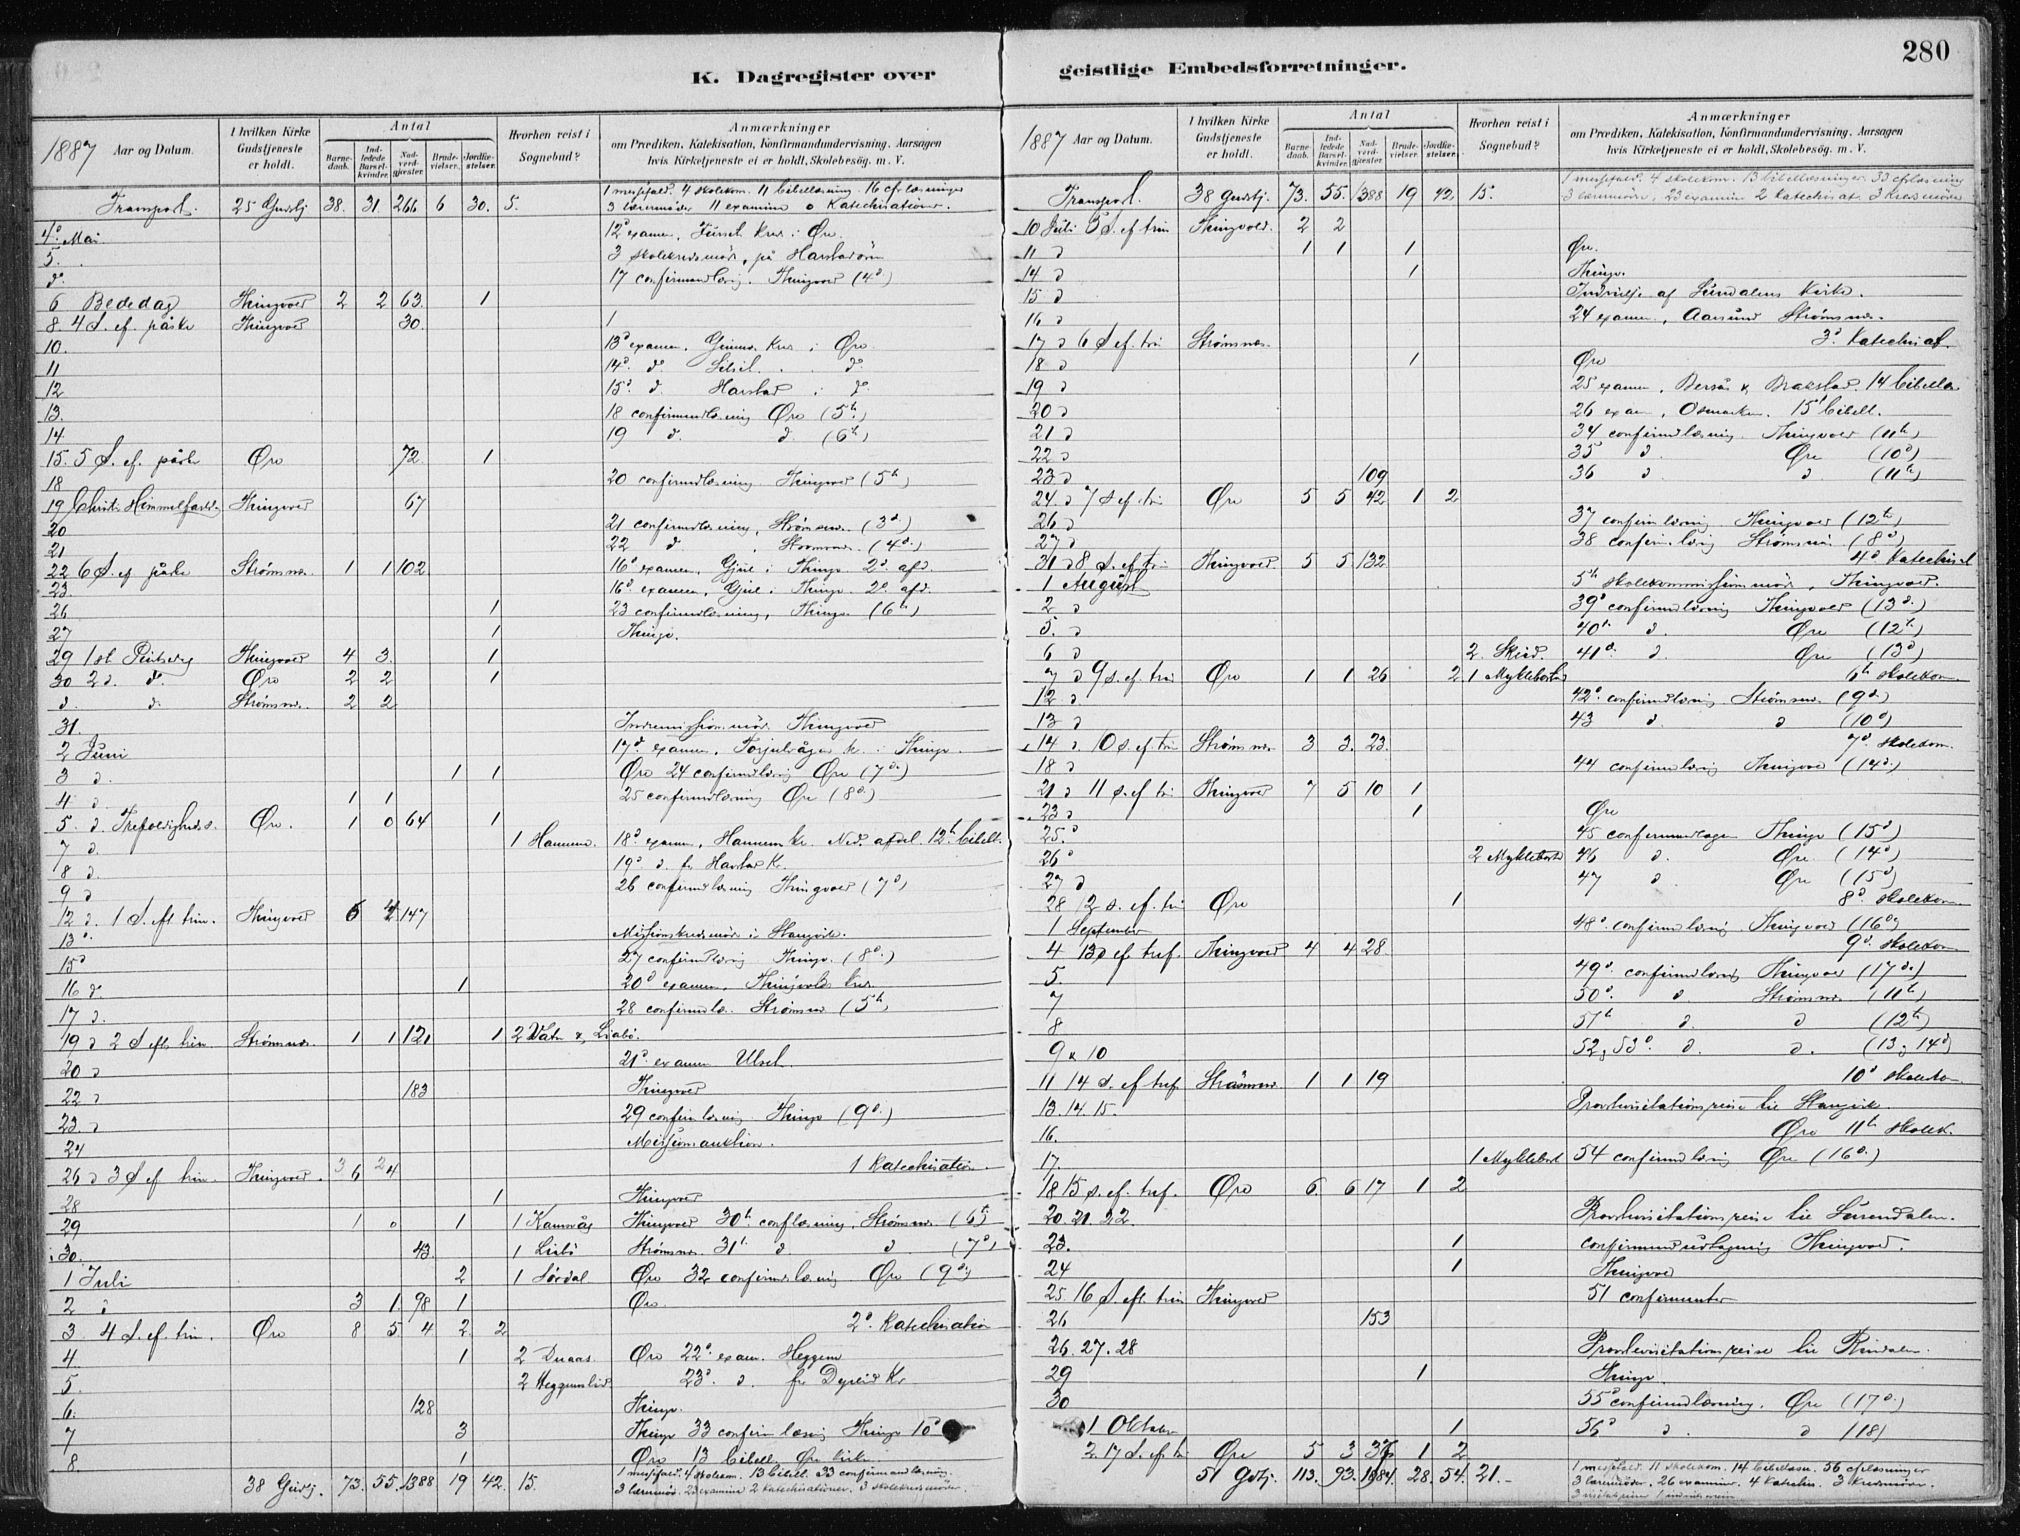 280
K. Dagregister over
1887 Aar og Datum.
I hvilken Kirke Gudstjeneste er holdt.
Antal
Barne-daab.
Ind-ledede Barsel-kvinder.
Nad-verd-gjester.
Brude-vielser.
Jordfæ-stelser.
Hvorhen reist i Sognebud?
Anmærkninger
om Prædiken, Katekisation, Konfirmandundervisning. Aarsagen
hvis Kirketjeneste ei er holdt, Skolebesög. m. V.
Transport. 25 Gudstj 38. 31. 266 6 30. 5. 4 skolekom. 11 bibellæsning. 16 cfrlæsninger
3 11 examina 0 Katechisationer.
4d Mai 12d examen, krds i Øre.
5. 3 skolekredsmöde, på
do 17 confirmandlæsng. Thingvold (4d)
6 Bededag Thingvold 2 2 63 1
8. 4 S. ef. påske Thingvold 30. 1
10. 13d examen. krds. i Øre
11 14d do do
12 15d d Harstad i do
13. 18 confirmandlæsning Øre (5te)
14. 19 d. d. (6te)
15. 5 S. ef. påske Øre 72 1
18 20 confirmdlæsning Thingvold (5te)
19 Christi Himmelfartsd. Thingvold 67
20 21 confirmdlæsning, Strømsnæs. (3d.)
21 22 d. Strømsnæs. (4d.)
22 6 S. ef påske Strømsnæs. 1 1 102 16d examen, Gjul i Thingv. 2d. afd.
23. 16d examen, Gjul i Thingv. 2d. afd.
26 1 23 confirmdlæsning, Thingv. (6te)
27 1 Thingv.
29 1ste Pintsedag Thingvold 4 3. 1
30 2d. do Øre 2 2 1
d. d. Strømsnæs. 2 2
31. Indremissionsmöde Thingvold
2 Juni 17d examen, Torjulvågen kr. i Thingv.
3 d. 1 1 Øre 24 confirmdlæsng Øre (7d.)
4 d. 1 1 25 confirmdlæsning Øre (8d.)
5. d. Trefoldighedss. Øre. 1 0 64 1
7 d. 1 18d examen, Kr. Ned. afdel. 12te bibell.
8 d. 19d d. fr Harstad Kr.
9 d 26 confirmdlæsning Thingvold (7d)
12 d. 1 S. eft trin. Thingvold 6 147
13d. Missionskredsmöde i Stangvik.
15d 27 confirmdlæsng Thingv. (8d.)
16 d. 1 20d examen, Thingvolds krds.
17 d. 28 confirmdlæ. Strømsnæs (5te)
19 d 2 S eft trin. Strømsnæs. 1 1 121 1 2 Vatn & Liabö.
20 d 21d examen Ulset.
22 d 183 Thingvold
23. d 29 confirmlæsning Thingv (9d.)
24 Missionsauktion.
26 d 3 S ef trin. Thingvold. 3 6 2 4 1 Katechisation.
28 1 Thingvold
29 1 0 1 1 Thingvold 30te conflæsning, Strømsnæs. (6te)
30. 43. 1 Liabö Strømsnæs. 31te d d (7d)
1 Juli 2 1 Sördal Øre 32 confirmdlæsning Øre (9d.)
2 d 3 1. 98 1 Øre.
3 4 S. ef trin. Øre 8 5 4 2 2 2d. Katechisation
4. 1 2 Øre 22d. exam. Heggem
5. 2 23d. d. fr Kr.
6. 128 Thingv.
7 3 Thingv 33 confirmlæsng Thingv 10d
8. 1 Øre 13 bibell. Øre kirke
38 Gudstj. 73. 55. 1388 19 42. 15. 4 skolekom. 13 bibell. 33 confirmandlæsng.
23 examina 2 katechisationer. 3 skolekredsmöder.
geistlige Embedsforretninger.
1887 Aar og Datum.
I hvilken Kirke Gudstjeneste er holdt.
Antal
Barne-daab.
Ind-ledede Barsel-kvinder.
Nad-verd-gjester.
Brude-vielser.
Jordfæ-stelser.
Hvorhen reist i Sognebud?
Anmærkninger
om Prædiken, Katekisation, Konfirmandundervisning. Aarsagen
hvis Kirketjeneste ei er holdt, Skolebesög. m. V.
Transport. 38 Gudstj. 73. 55. 1388 19 42. 15. 4 skolekom. 13 bibellæsninger 33 cfrlæsning
23 examina 2 katechisat. 3 kredsmöder
10 Juli 5 S. ef trin Thingvold. 2 2
11 d 1 1 1 Øre.
14 d 1 Thingv.
15 d Indvielse af Sundalens Kirke.
16 d 24 examen, Aarsund Strømsnæs.
17 d 6 S ef. tri Strømsnæs. 3d. Katechisat.
18 d 1 Øre
19 d 25 examen, & 14 bibellæ
20 d 26 exam, Osmarken. 15te bibell.
21 d 34 confirmdlæsning Thingvold (11te)
22 d 35 d. Øre (10d)
23 d 109 36 d. d. (11te)
24. d 7 S ef. tri Øre 5 5 42 1 2
26 d 37 confirmlæsning Thingvold (12te)
27 d 38 confirmlæsng Strømsnæs (8d)
31 d 8 S. ef. tri Thingvold 5 5 132 4d Katechisat
1 August 5te skolekommissionsmöde, Thingvold.
2 d 39d confirmdlæsning Thingvold (13d.)
5. d 40te d. Øre (12te)
6 d 2. 41d. d. Øre (13d)
7 d 9 s. ef. trin Øre 1 1 26 2 1 Myklebostad 6te skolekom.
12 d 42d. confirmdlæsng Strømsnæs. (9d.)
13 d 43 d d (10d)
14 d. 10 s. ef tri Strømsnæs 3 3. 23. 7d. skolekom.
18 d 44 confirmdlæsng Thingvold (14d.)
21 d 11 s. ef tri Thingvold 7 5 10 1
23 d 1 Øre
25. d 45 confirmandlæsn Thingv (15d)
26 d 2 Myklebostd 46 d. Øre (14d)
27 d 47 d Øre (15d)
28 12 s. ef. tri Øre 1 8d skolekom.
1 September 48d. confirmdlæsng Thingvold (16d)
4 13 d ef. tref. Thingvold 4 4 28. 9d. skolekom
5. 49d. confirmdlæsng Thingvold (17d.)
7 50d. d Strømsnæs. (11te)
8 51te d. d (12te)
9 & 10 52, 53d. d. d. (13 & 14d)
11 14 d. ef tref. Strømsnæs. 1 1 19 10d skolekom.
13. 14. 15. Provstevisitationsreise til Stangvik.
16. Øre 11te skolek.
17. 1 Myklebost 54 confirmdlæsng Øre (16d.)
18 15 s. ef. tref. Øre 6. 6 17 1 2
20. 21. 22. Provstevisitationsreise til Surendalen.
23. 1 confirmandudtagning Thingvold.
24 1 Thingvold
25 16 S. eft. trin Thingvold 51 confirmanter
26 153
26. 27. 28 Provstevisitationsreise til Rindalen.
29 1 Thingv.
30 55d confirmdlæsning. Øre (17d.)
1 Oktober 1 56d d. d (18)
2. 17 S. ef tri Øre 5 3 1 2
51 Gdstj. 113. 93. 1984. 28. 54. 21. 11 skolekom. 14 bibellæsn. 56 cfrlæsninger
26 examiner. 4 Katechis. 3 kredsmöder.